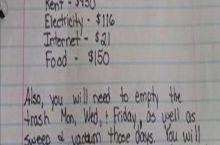 Rent - $450
Electricity - $116
Internet - $21
Food - $150
Also, you will need to empty the
trash Mon, Wed, + Friday, as well as
sweep & vacuum those days. You will